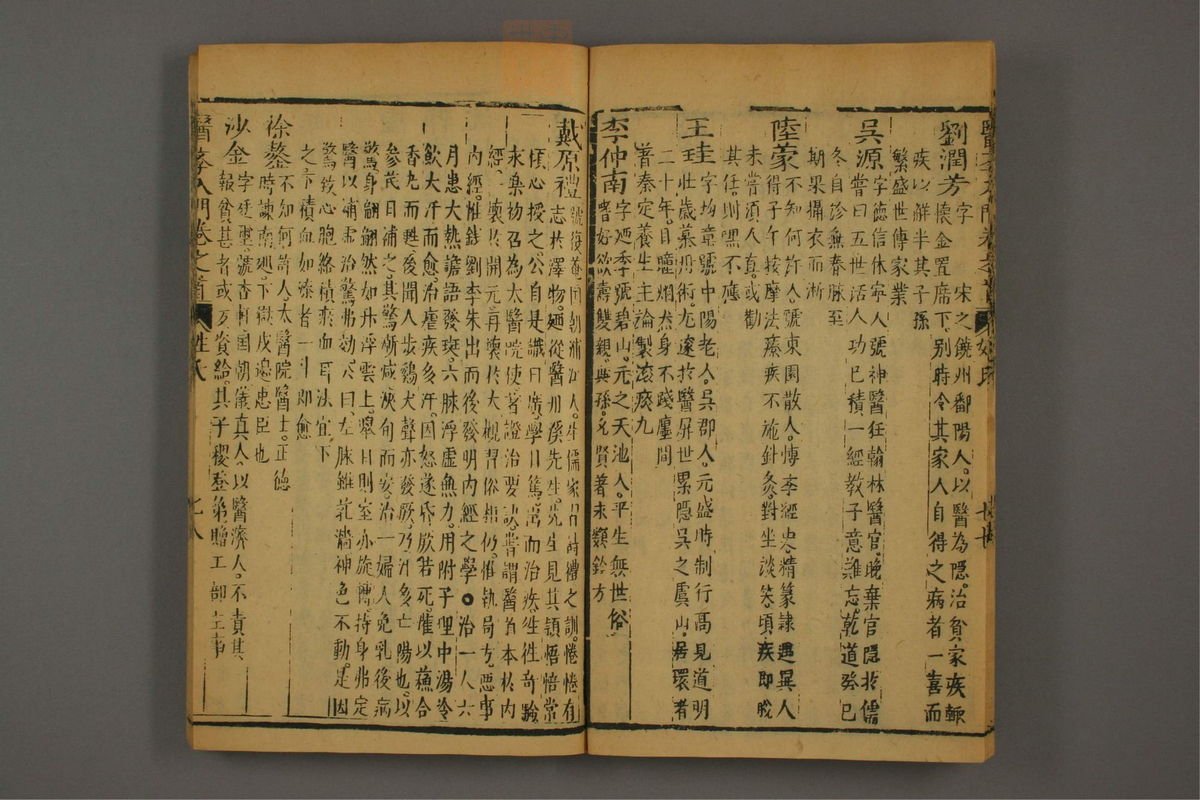 劉潤芳字
宋之饒州鄱陽人以醫為隱治貧家疾輒
懷金置席下別時令其家人自得之病者一喜而
疾以鮮半其子孫
繁盛世傳家業
吳源字德信休寧人號神醫任翰林醫官晚棄官隱於儒
嘗曰五世活人功已積一經教子意難忘乾道癸巳
冬自診無春脉至
期果攝衣而逝
陸蒙不知何許人號東園散人博孛經史精篆隸遇異人
得子午按摩法療疾不施針灸對坐談笑頃疾即脫
未嘗須人真或勸
其任則哩不應
王珪字均章號中陽老人吳郡人元盛時制行高見道明
壯歲慕丹術尤邃於醫屏世累隱吳之虞山居環者
二十年目瞳炯然身不踐廛間
著泰定養生主論製滾痰丸
李仲南字迺季號碧山元之天池人平生無世俗
嗜好欲壽雙親與孫允賢著永類鈐方
戴原禮號復菴國朝浦江人生儒家習詩禮之訓惓惓有
志於澤物廼從醫丹溪先生先生見其頴悟悟常
傾心授之公自是識日廣學日篤出而治疾往往奇驗
永樂初召為太醫院使著證治要訣嘗謂醫道本於內
經一壞於開元再壞於大觀習俗相仍惟執局方惡事
內經雖錢劉李朱出而後發明內經之學○治一人六
月患大熱譫語發斑六脉浮虛無力用附子理中湯冷
飲大汗而愈治瘧疾多汗因怒遂昏厥若死灌以蘇合
香丸而甦後聞人步雞犬聲亦發厥乃汗多亡陽也以
參芪日補之其驚漸減浹旬而安治一婦人免乳後病
驚身翩翩然如升浮雲上舉目則室亦旋轉持身弗定
醫以補虛治驚弗効公曰左脉雖芤濇神色不動是因
驚致心胞絡積瘀血耳法宜下
之下積血如漆者一斗即愈
徐鏊不知何許人太醫院醫士正德
時諫南廵下獄戍邊忠臣也
沙金字廷璽號杏軒國朝儀真人以醫濟人不責其
報貧甚者或反資給其子稷登第贈工部主事
醫孛入門卷之首
姓氏
七八